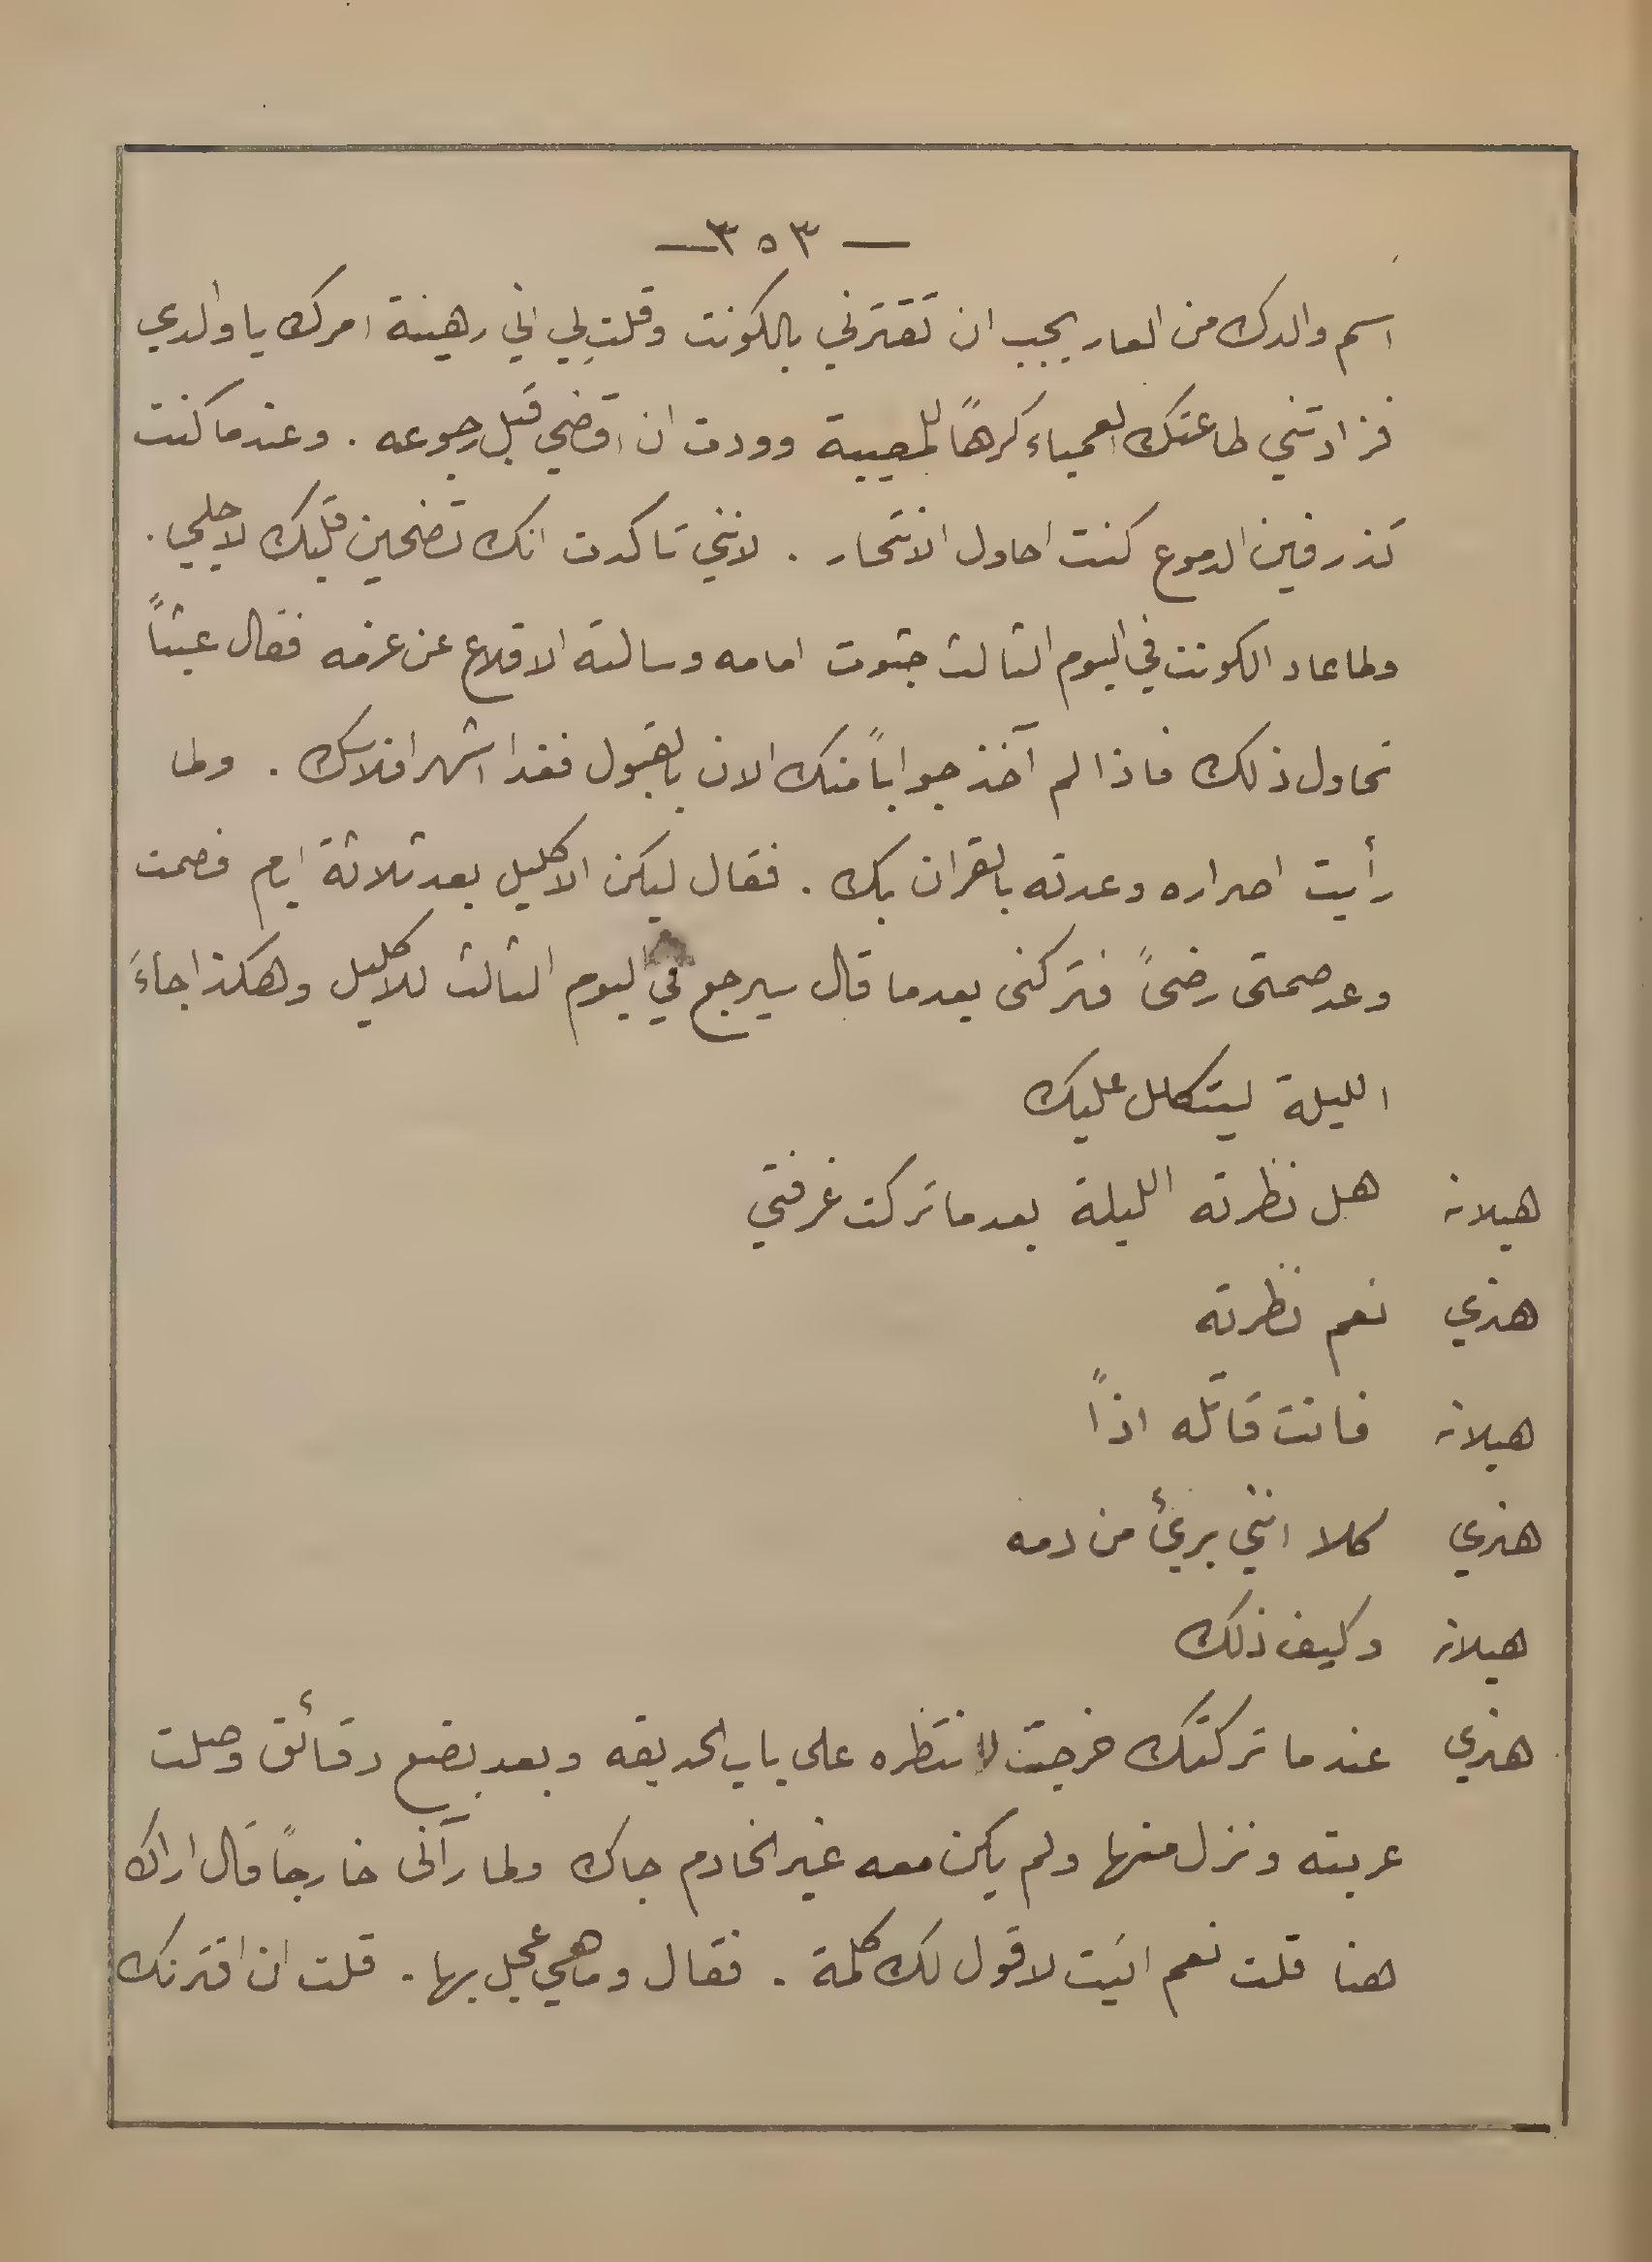 — ٣٥٣ —
اسم والدك من العار يجب ان تقترني بالكونت وقلتِ لي اني رهينة امرك يا والدي
فزادتني طاعتك العمياء كرهاً للمصيبة وودت ان اقضي قبل رجوعه . وعندما كنت
تذرفين الدموع كنت احاول الانتحار . لانني تاكدت انك تضحين قلبك لاجلي .
ولما عاد الكونت في اليوم الثالث جثوت امامه وسالته الاقلاع عن عزمه فقال عبثاً
تحاول ذلك فاذا لم آخذ جواباً منك الان بالقبول فغدا اشهر افلاسك . ولما
رأيت اصراره وعدته بالقران بك . فقال ليكن الاكليل بعد ثلاثة ايام فصمت
وعد صمتى رضىً فتركنى بعدما قال سيرجع في اليوم الثالث للاكليل وهكذا جاءَ
الليلة ليتكلل عليك
هيلانة هل نظرته الليلة بعدما تركت غرفتي
هنري نعم نظرته
هيلانة فانت قاتله اذاً
هنري كلا انني بريئ من دمه
هيلانة وكيف ذلك
هنري عندما تركتك خرجت لانتظره على باب الحديقه وبعد بضع دقائق وصلت
عربته ونزل منها ولم يكن معه غير الخادم جاك ولما رآنى خارجاً قال اراك
هنا قلت نعم اتيت لاقول لك كلمة . فقال وما هي عجل بها . قلت ان اقترنك